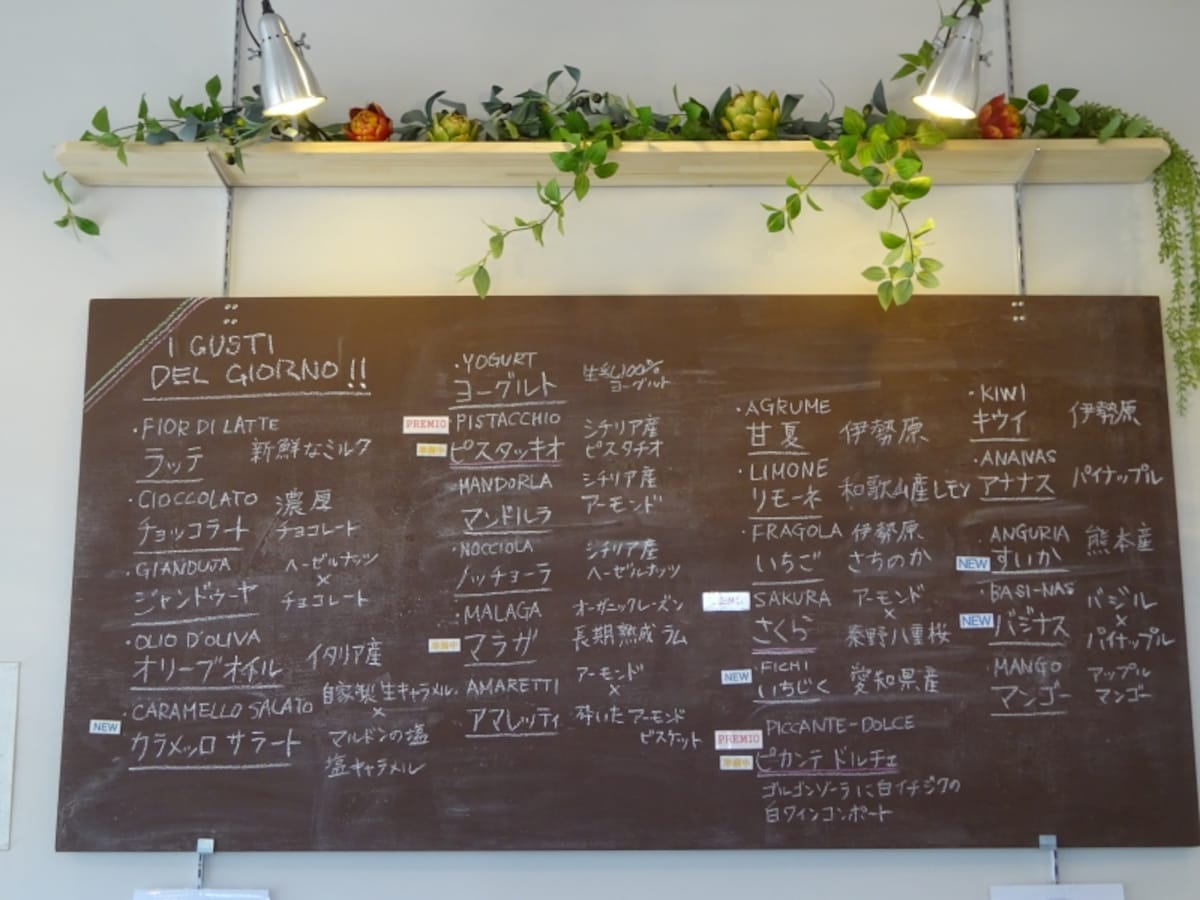 I GUSTI
DEL GIORNO!!
・FIOR DI LATTE
ラッテ 新鮮なミルク
・CIOCCOLATO 濃厚
チョッコラート チョコレート
・GIANDUJA ヘーゼルナッツ
×
ジャンドゥーヤ チョコレート
・OLIO D'OLIVA
オリーブオイル イタリア産
・CARAMELLO SALATO 自家製生キャラメル
×
NEW
カラメッロ サラート マルドンの塩
塩キャラメル
・YOGURT 生乳100%
ヨーグルト ヨーグルト
PREMIO
・PISTACCHIO シチリア産
準備中
ピスタッキオ ピスタチオ
・MANDORLA シチリア産
マンドルラ アーモンド
・NOCCIOLA シチリア産
ノッチョーラ ヘーゼルナッツ
・MALAGA オーガニックレーズン
準備中
マラガ 長期熟成ラム
・AMARETTI アーモンド
×
アマレッティ 砕いたアーモンド
ビスケット
・AGRUME
甘夏 伊勢原
・LIMONE
リモーネ 和歌山産レモン
・FRAGOLA 伊勢原
いちご さちのか
SAKURA アーモンド
×
さくら 秦野八重桜
・FICHI
NEW
いちじく 愛知県産
PREMIO
PICCANTE-DOLCE
準備中
ピカンテ ドルチェ
ゴルゴンゾーラに白イチジクの
白ワインコンポート
・KIWI
キウイ 伊勢原
・ANANAS
アナナス パイナップル
・ANGURIA
NEW
すいか 熊本産
・BASI-NAS バジル
×
NEW
バジナス パイナップル
・MANGO アップル
マンゴー マンゴー